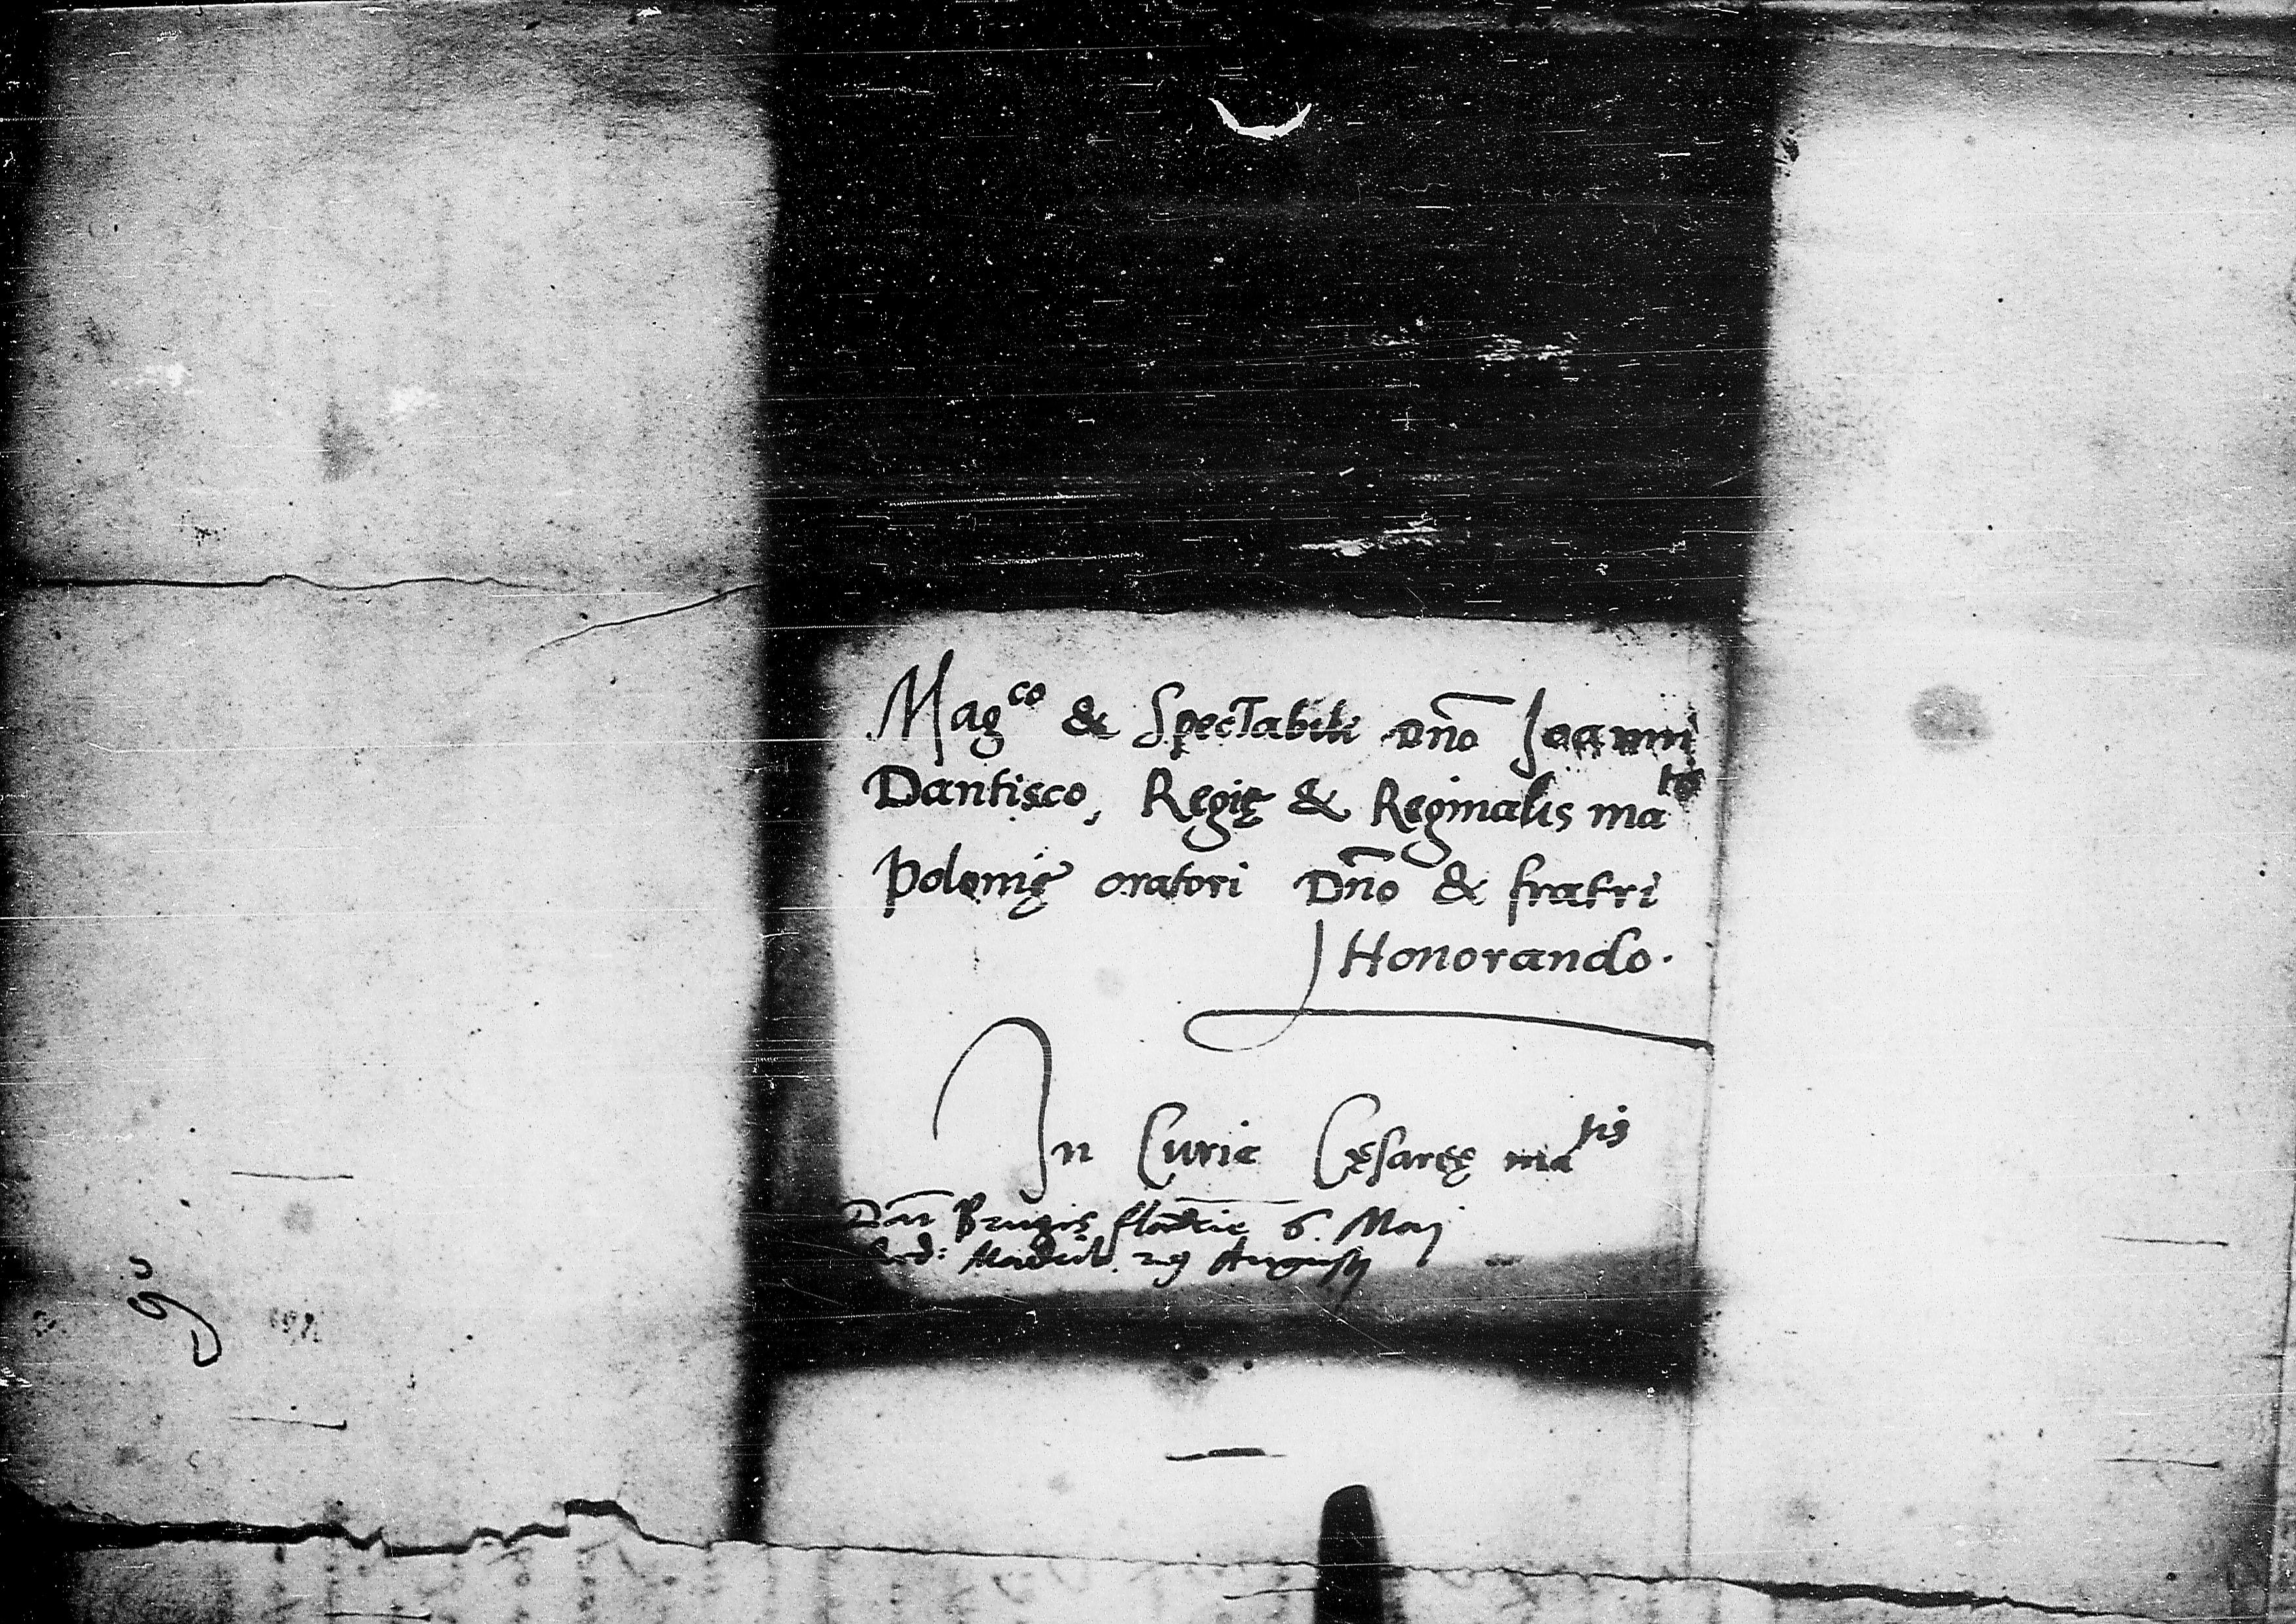 Mag^co & Spectabili Dn̄o Joanni
Dantisco, Regię & Reginalis ma^tis
Polonię oratori Dn̄o & fratri
Honorando.
In Curia Cęsaręę ma^tis
Dat̄ Brugis flādrie 6. Maij
Red: Madril. 29 Augusti